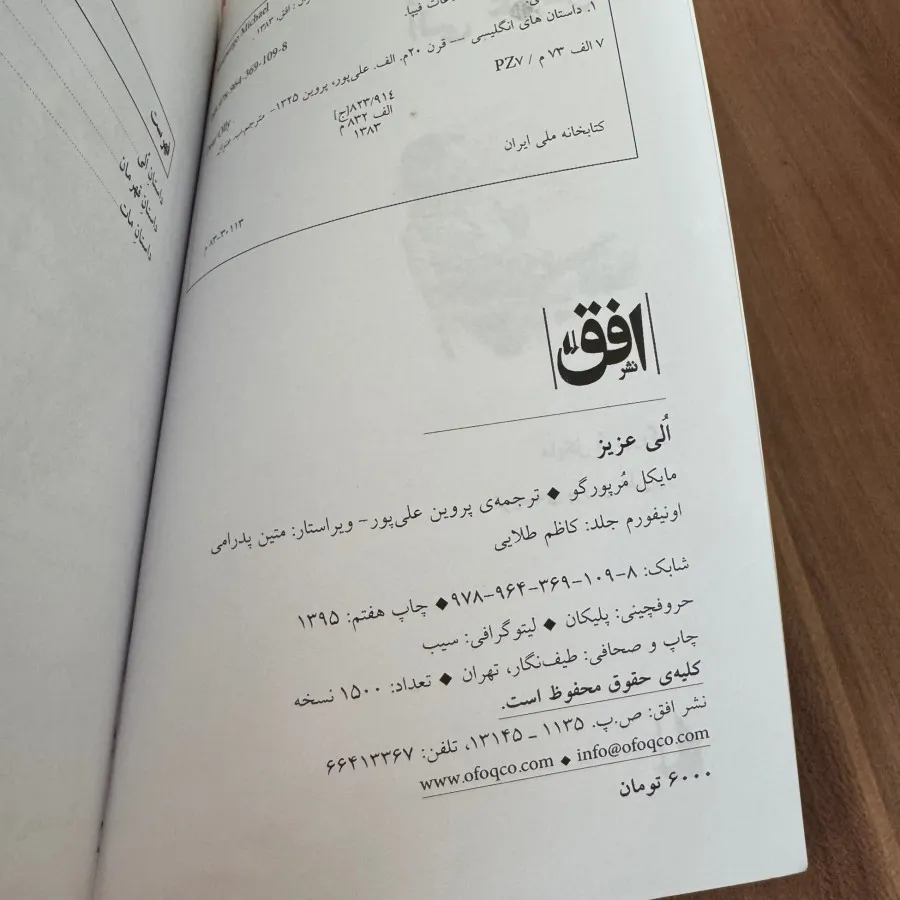 Michael
افق، ۱۳۸۳
964-369-109-8
۱. داستان های انگلیسی — قرن ۲۰م. الف. علی‌پور، پروین ۱۳۲۵- مترجم.ب. عنوان.
۷ الف ۷۳ م / PZ۷
۸۲۳/۹۱۴[ج]
الف ۸۳۲ م
۱۳۸۳
کتابخانه ملی ایران
داستان مت
افق
نشر
اُلی عزیز
مایکل مُرپورگو ◆ ترجمه‌ی پروین علی‌پور- ویراستار: متین پدرامی
اونیفورم جلد: کاظم طلایی
شابک: ۸-۱۰۹-۳۶۹-۹۶۴-۹۷۸ ◆ چاپ هفتم: ۱۳۹۵
حروفچینی: پلیکان ◆ لیتوگرافی: سیب
چاپ و صحافی: طیف‌نگار، تهران ◆ تعداد: ۱۵۰۰ نسخه
کلیه‌ی حقوق محفوظ است.
نشر افق: ص.پ. ۱۱۳۵ - ۱۳۱۴۵، تلفن: ۶۶۴۱۳۳۶۷
www.ofoqco.com ◆ info@ofoqco.com
۶۰۰۰ تومان